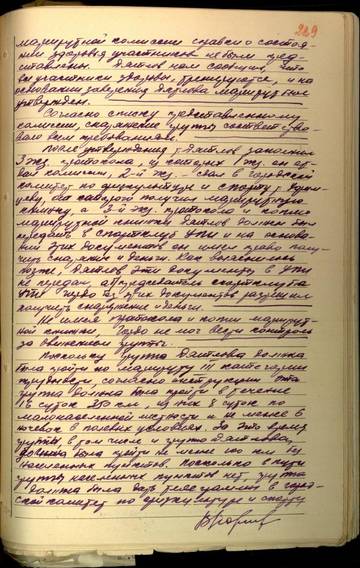 229
маршрутной комиссии справки о состоя-
нии здоровья участников не были пред-
ставлены. Дятлов нам сообщил, что
все участники здоровы, тренируются, и на
основании заверения Дятлова маршрут был
утвержден.
Согласно списку представленному
комиссии, снаряжение группы соответствова-
ло всем требованиям.
После утверждения Дятлов заполнил
3 экз. протокола, из которых 1 экз. он от
комиссии, 2-й экз. сдал в городской
комитет по физкультуре и спорту
от которой получил маршрутную
книжку, а 3-й экз. протокола и копию
маршрутной книжки Дятлов должен был
передать в спортклуб УПИ и на основа-
нии этих документов он имел право полу-
чить снаряжение и деньги. Как выяснилось
позже, Дятлов эти документы в УПИ
не передал, а председатель спортклуба
УПИ Гордо без этих документов разрешил
получить снаряжение и деньги.
Не имея протокола и копии маршрут-
ной книжки, Гордо не мог вести контроль
за движением группы.
Поскольку группа Дятлова должна
была пройти по маршруту III категории
трудности, согласно инструкции эта
группа должна была пройти в течение
16 суток 350 км из них 8 суток по
малонаселенной местности и не менее 6
ночевок в полевых условиях. За это время
группы в том числе и группа Дятлова,
должна была пройти не менее
населенных пунктов. Поскольку в пути
группы населенных пунктов нет, группа
должна была дать телеграммы в город-
ской комитет по физкультуре и спорту